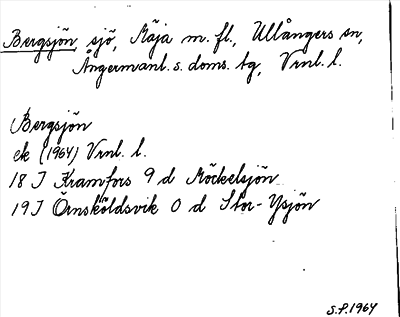 Bergsjön, sjö, Mäja m. fl., Ullångers sn,
Ångermanl. s. doms. tg, Vrnl. l.
Bergsjön
ek (1964) Vrnl. l.
18 J Kramfors 9 d Möckelsjön
19 J Örnsköldsvik 0 d Stor-Ysjön
S.P. 1964